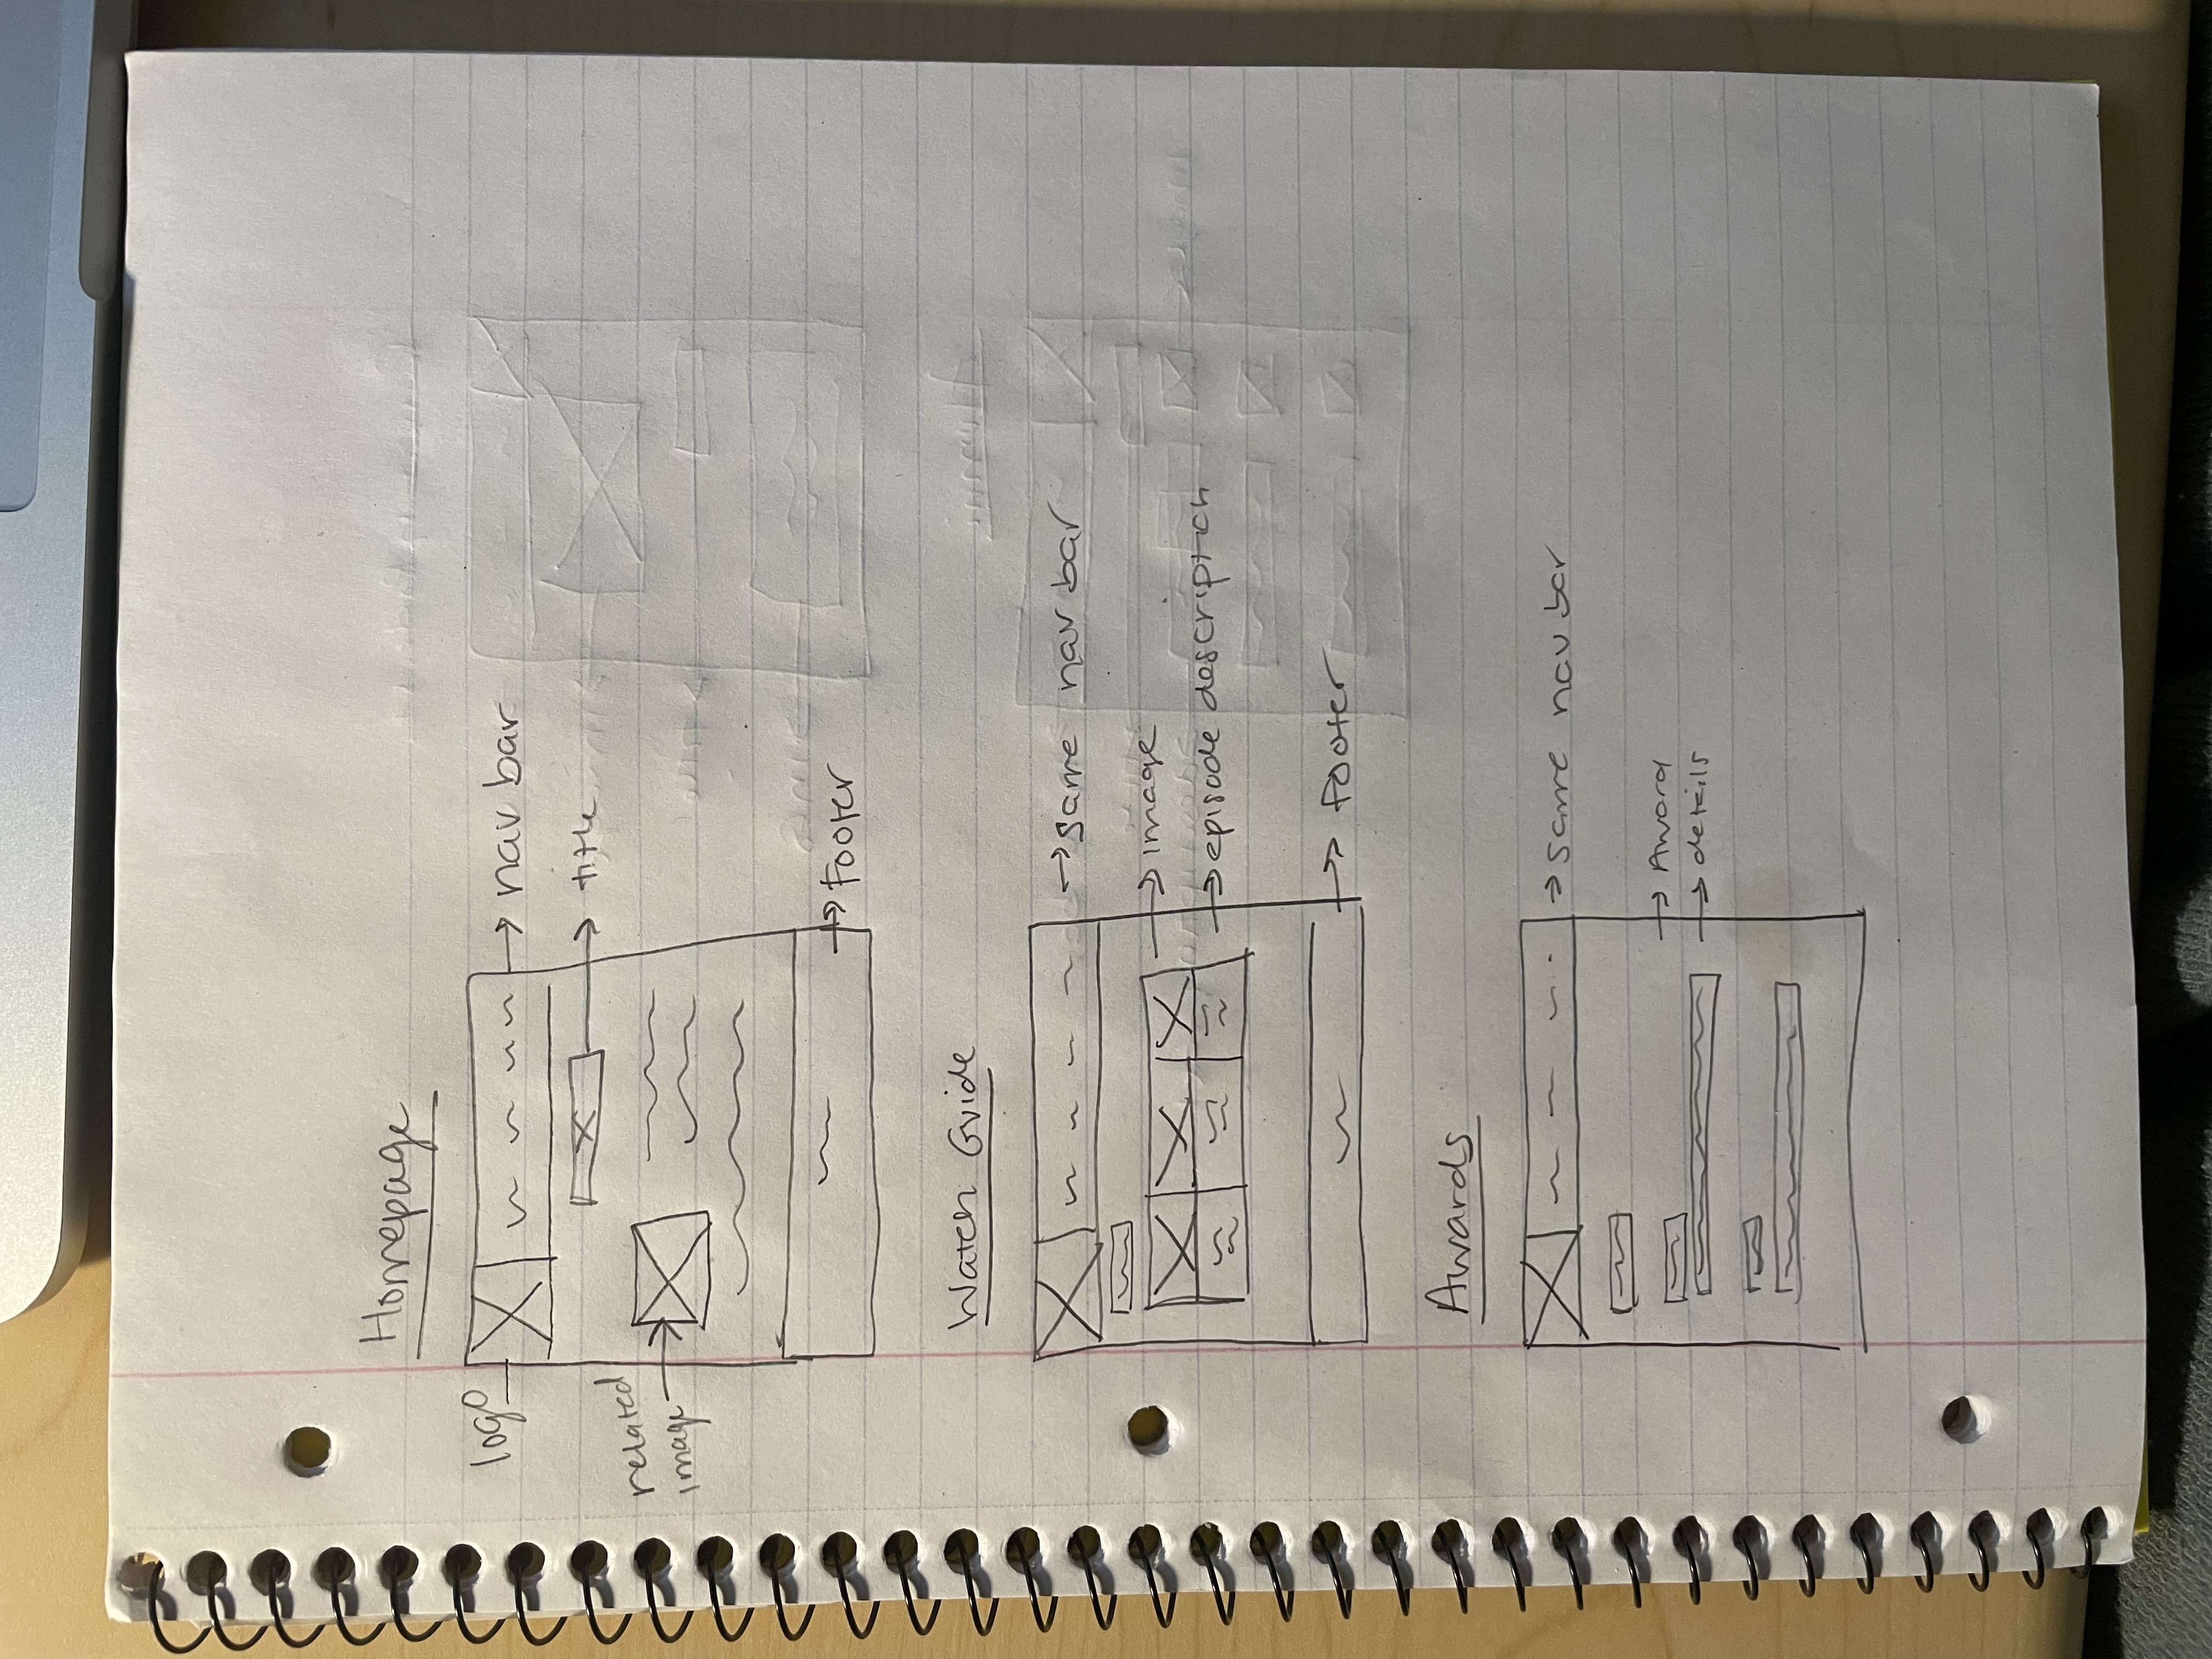 Homepage
logo
nav bar
title
related
image
Footer
Watch Guide
same nav bar
image
episode description
footer
Awards
same nav bar
Award
details